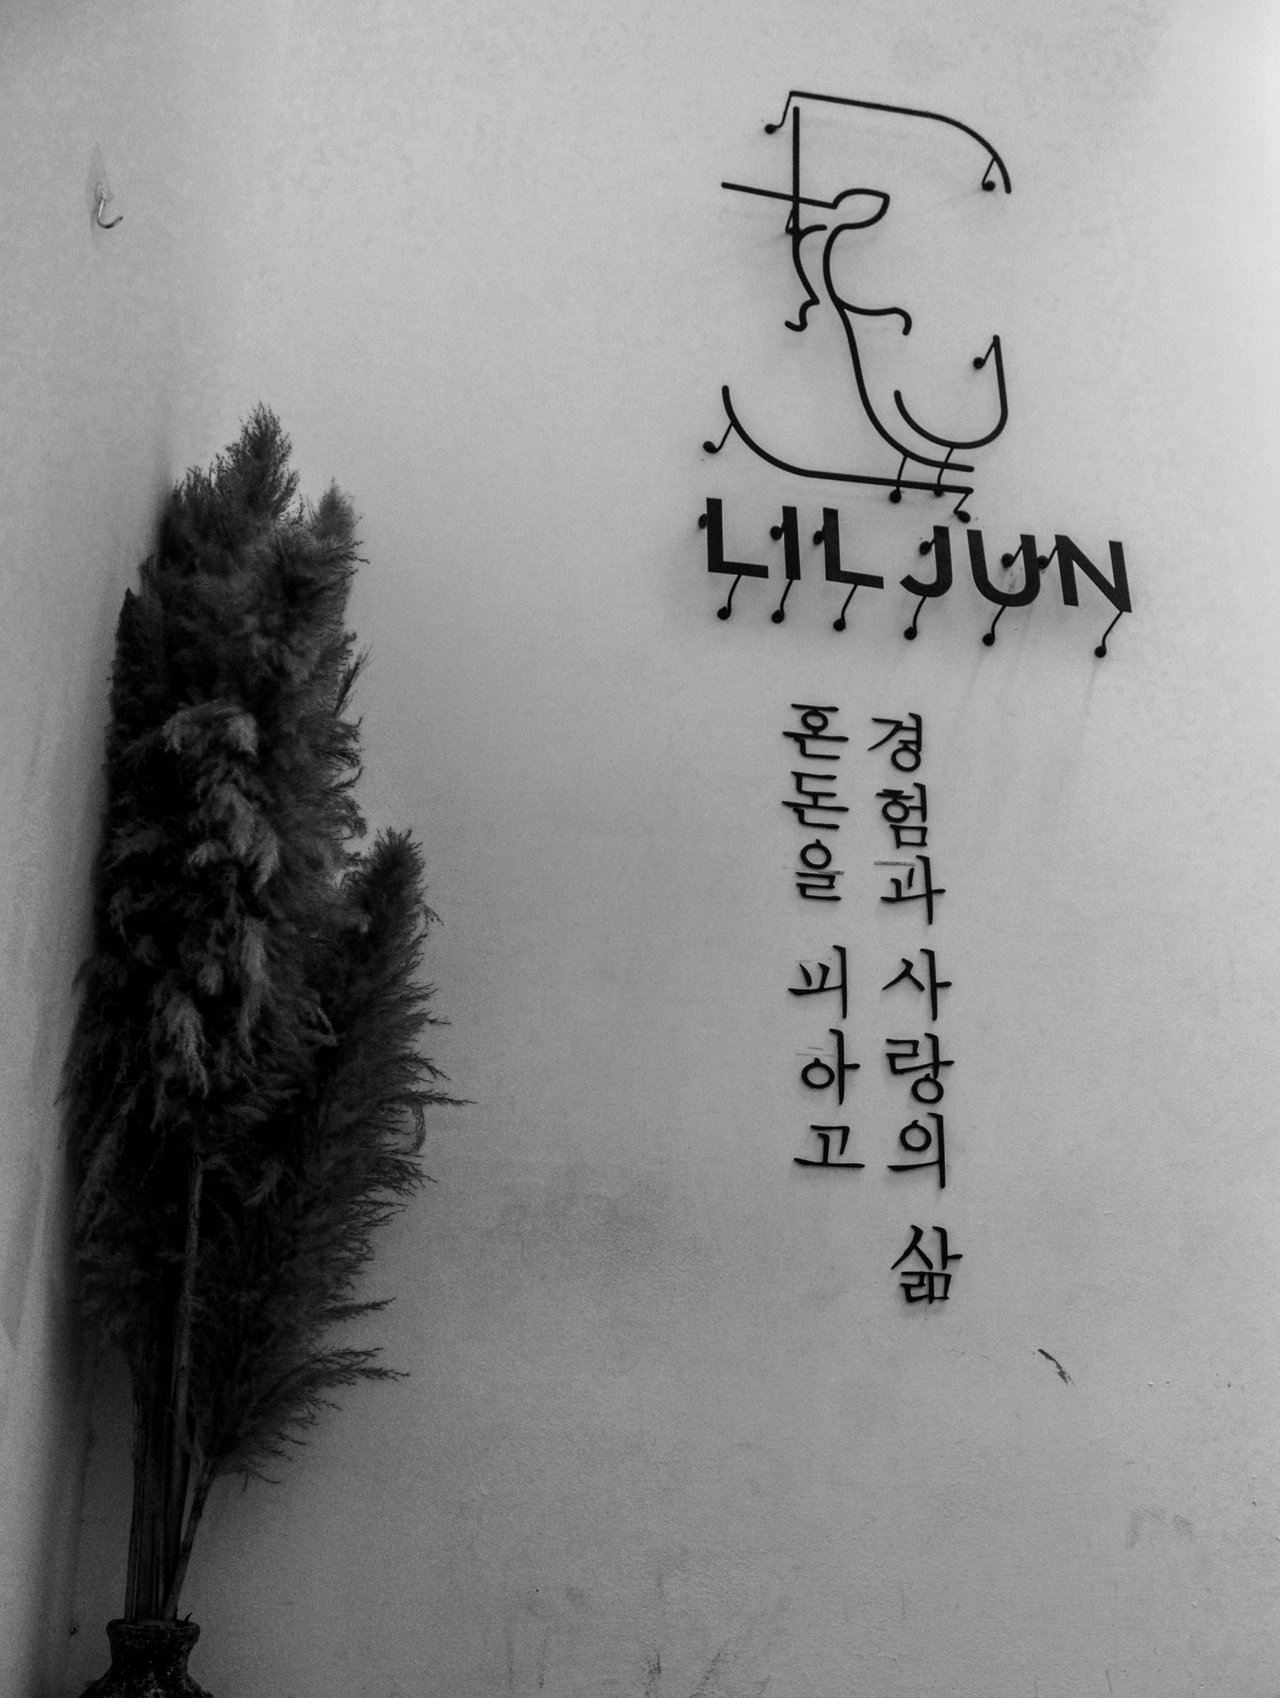 LIL JUN
혼돈을 피아고
경험과 사랑의 삶